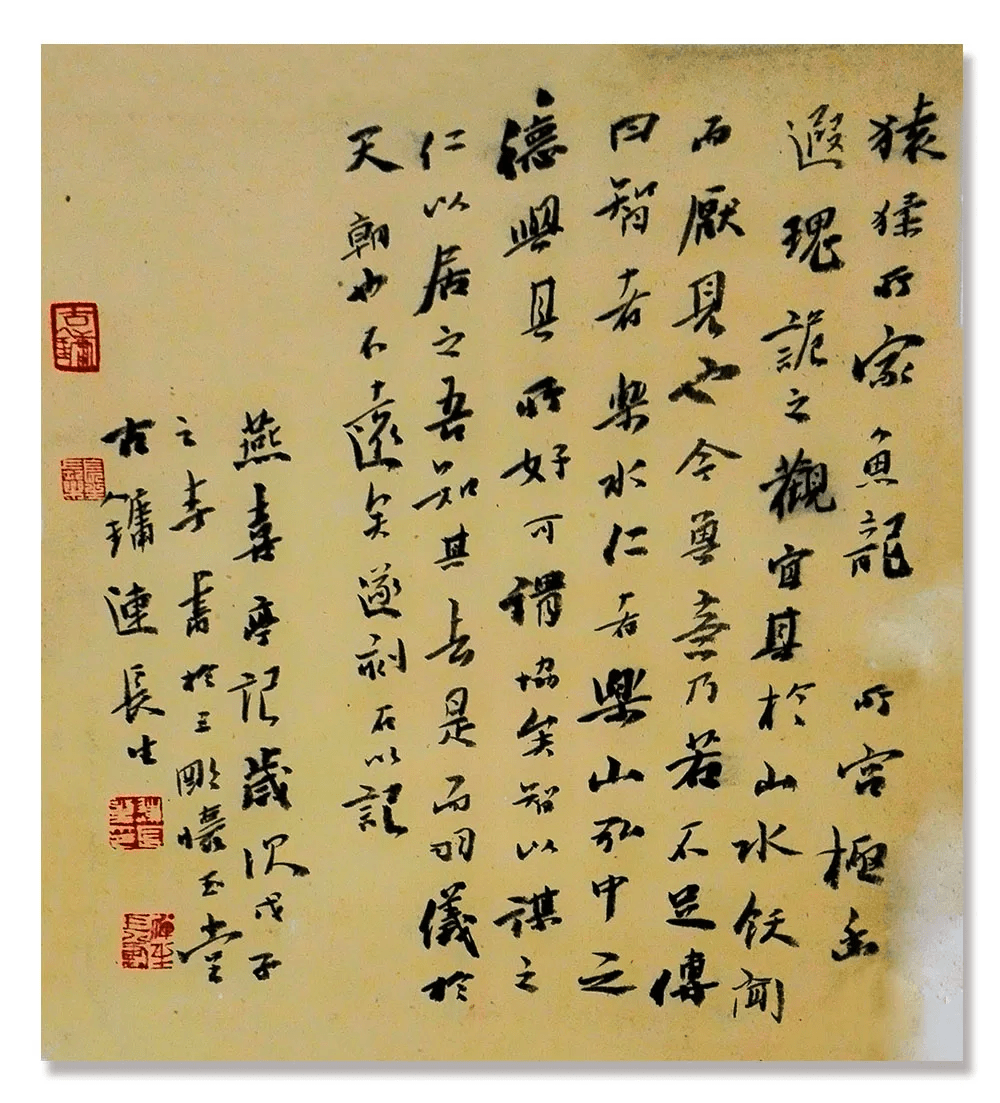 猿猱所家魚龍所宮極幽
遐瑰詭之觀宜其於山水飫聞
而厭見也今尊意乃若不足傳
曰智者樂水仁者樂山弘中之
德與其所好可謂協矣智以謀之
仁以居之吾知其去是而羽儀於
天朝也不遠矣遂刻石以記
燕喜亭記歲次戊子
之春書於三懷玉堂
古鏞連長生
古鏞